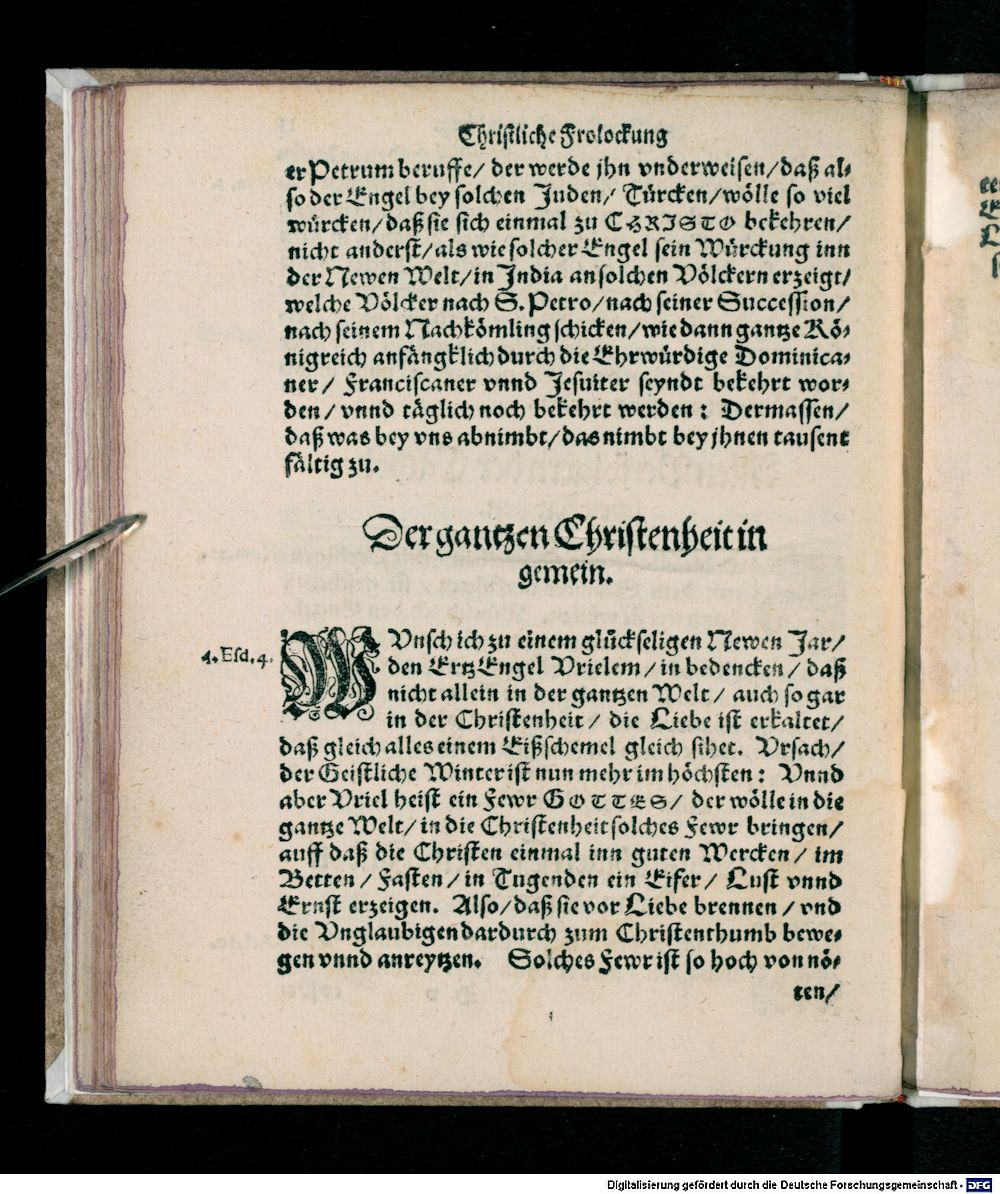 Christliche Frolockung
er Petrum beruffe/ der werde jhn vnderweisen/ daß al-
so der Engel bey solchen Juden/ Türcken/ wölle so viel
würcken/ daß sie sich einmal zu CHRISTO bekehren/
nicht anderst/ als wie solcher Engel sein Würckung inn
der Newen Welt/ in India an solchen Völckern erzeigt/
welche Völcker nach S. Petro/ nach seiner Succession/
nach seinem Nachkömling schicken/ wie dann gantze Kö-
nigreich anfängklich durch die Ehrwürdige Dominica-
ner/ Franciscaner vnnd Jesuiter seyndt bekehrt wor-
den/ vnnd täglich noch bekehrt werden: Dermassen/
daß was bey vns abnimbt/ das nimbt bey jhnen tausent
fältig zu.
Der gantzen Christenheit in
gemein.
4. Esd. 4.
WVnsch ich zu einem glückseligen Newen Jar/
den Ertz Engel Vrielem/ in bedencken/ daß
nicht allein in der gantzen Welt/ auch so gar
in der Christenheit/ die Liebe ist erkaltet/
daß gleich alles einem Eißschemel gleich sihet. Vrsach/
der Geistliche Winter ist nun mehr im höchsten: Vnnd
aber Vriel heist ein Fewr GOTTES/ der wölle in die
gantze Welt/ in die Christenheit solches Fewr bringen/
auff daß die Christen einmal inn guten Wercken/ im
Betten/ Fasten/ in Tugenden ein Eifer/ Lust vnnd
Ernst erzeigen. Also/ daß sie vor Liebe brennen/ vnd
die Vnglaubigen dardurch zum Christenthumb bewe-
gen vnnd anreytzen. Solches Fewr ist so hoch von nö-
ten/
Digitalisierung gefördert durch die Deutsche Forschungsgemeinschaft - DFG